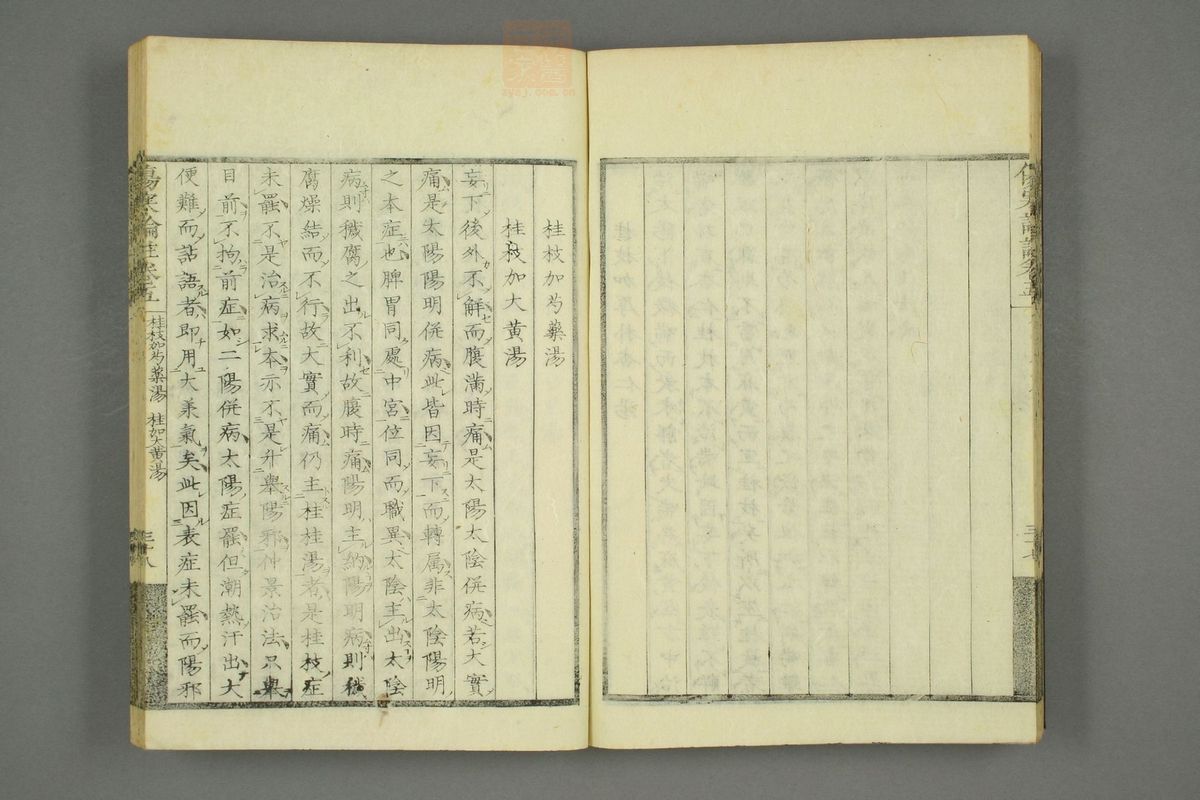 桂枝加芍藥湯
桂枝加大黃湯
妄下後外不解而腹滿時痛是太陽太陰併病若大實
痛是太陽陽明併病此皆因妄下而轉属非太陰陽明
之本症也脾胃同處中宮位同而職異太陰主出太陰
病則穢腐之出不利故腹時痛陽明主納陽明病則穢
腐燥結而不行故大實而痛仍主桂枝湯者是桂枝症
未罷不是治病求本亦不是升舉陽邪仲景治法只舉
目前不拘前症如二陽併病太陽症罷但潮熱汗出大
便難而譫語者即用大承氣矣此因表症未罷而陽邪
傷寒論註卷五
桂枝加芍藥湯 桂加大黃湯
三十八